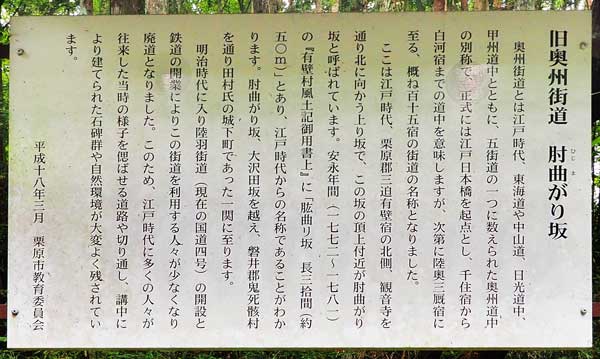 旧奥州街道 肘曲がり坂
ひじま
奥州街道とは江戸時代、東海道や中山道、日光道中、
甲州道中とともに、五街道の一つに数えられた奥州道中
の別称で、正式には江戸日本橋を起点とし、千住宿から
白河宿までの道中を意味しますが、次第に陸奥三厩宿に
至る、概ね百十五宿の街道の名称となりました。
ここは江戸時代、栗原郡三迫有壁宿の北側、観音寺を
通り北に向かう上り坂で、この坂の頂上付近が肘曲がり
坂と呼ばれています。安永年間(一七七二〜一七八一)
の『有壁村風土記御用書上』に「肱曲り坂 長三拾間(約
五〇m)」とあり、江戸時代からの名称であることがわか
ります。肘曲がり坂、大沢田坂を越え、磐井郡鬼死骸村
を通り田村氏の城下町であった一関に至ります。
明治時代に入り陸羽街道(現在の国道四号)の開設と
鉄道の開業によりこの街道を利用する人々が少なくなり
廃道となりました。このため、江戸時代に多くの人々が
往来した当時の様子を偲ばせる道路や切り通し、講中に
より建てられた石碑群や自然環境が大変よく残されてい
ます。
平成十八年三月 栗原市教育委員会